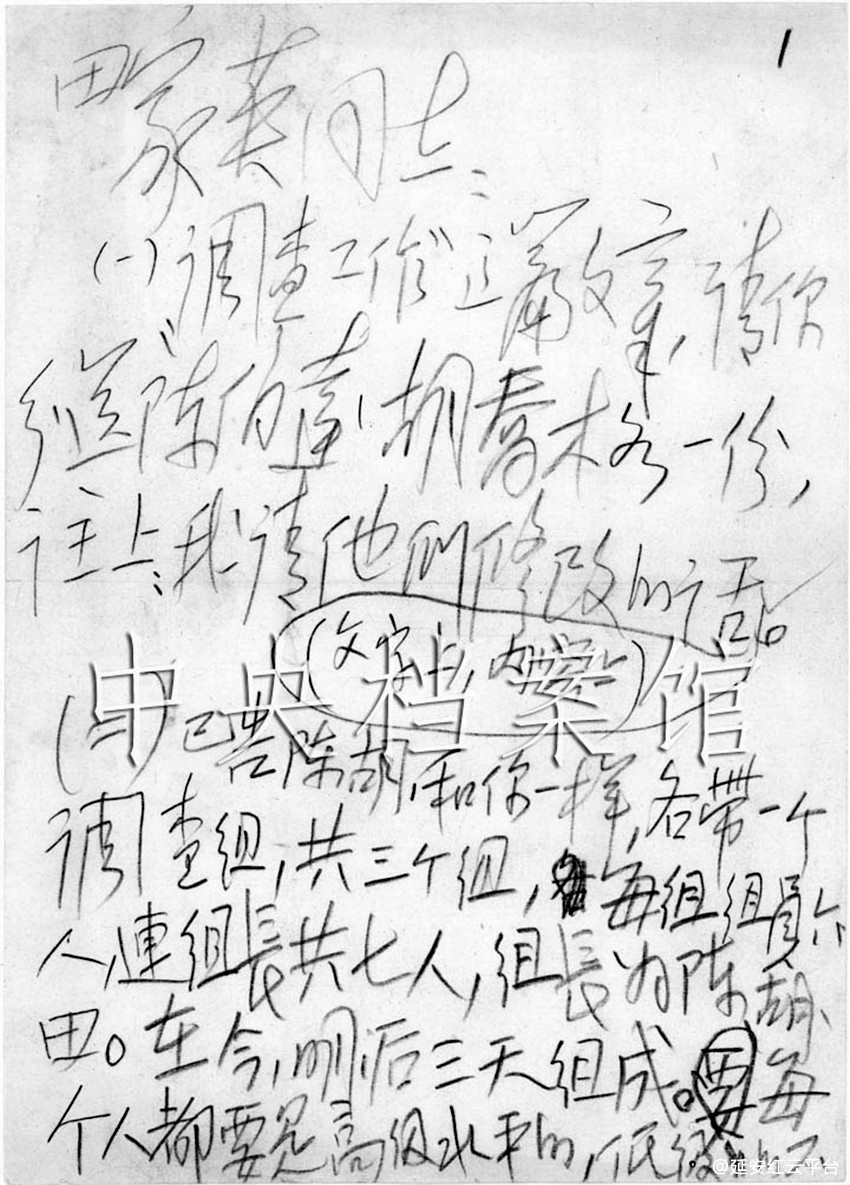 1
田家英同志:
(一)“调查工作”这篇文章,请你
送陈伯達、胡喬木各一份,
註上:我请他们修改的话。
(文字上,内容上)
中央档案馆
(二)已告陈胡,和你一样,各带一个
调查组,共三个组,每组组員六
人,連组長共七人,组長为陈、胡、
田。在今、明、后三天组成。每
个人都要是高级水平的,低级的不
@延安红云平台